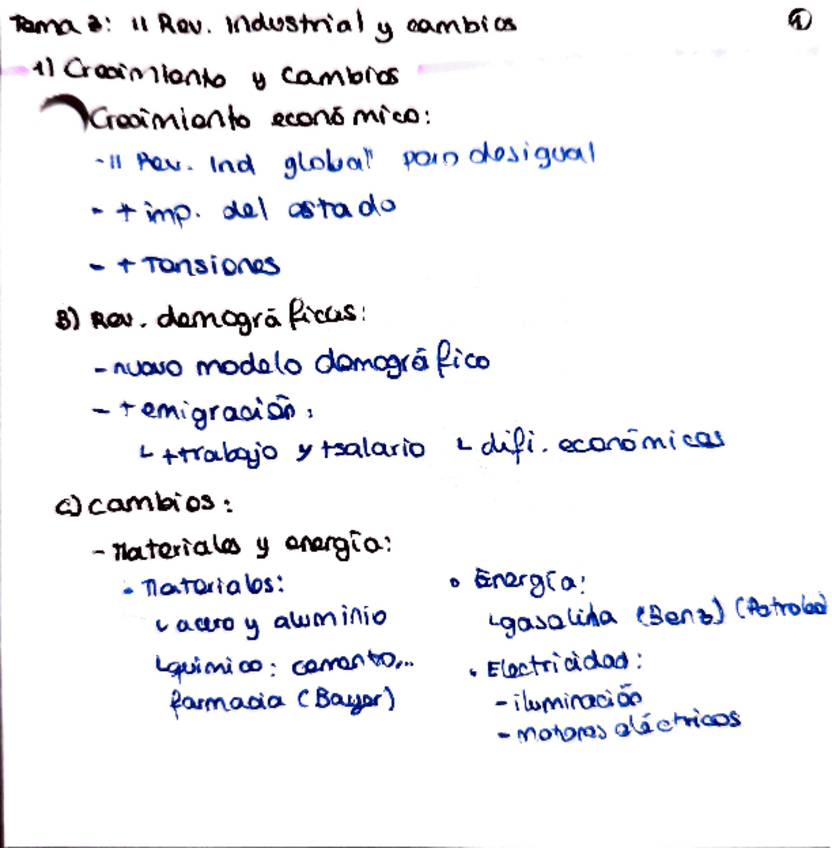 Tema 2: II Rev. Industrial y cambios
1
1) Crecimiento y cambios
Crecimiento económico:
- II Rev. Ind global" pero desigual
- + imp. del estado
- + Tensiones
B) Rev. demográficas:
- nuevo modelo demográfico
- + emigración:
↳ +trabajo y +salario ↳ difi. económicas
C) cambios:
- Materiales y energía:
• Materiales:
↳ acero y aluminio
↳ químico: cemento,...
farmacia (Bayer)
• Energía:
↳ gasolina (Benz) (Petroleo)
• Electricidad:
- iluminación
- motores eléctricos